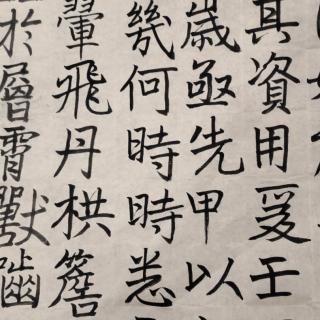 其資用爰壬
歲亟先甲以
幾何時時
翬飛丹栱簷
於層霄獸